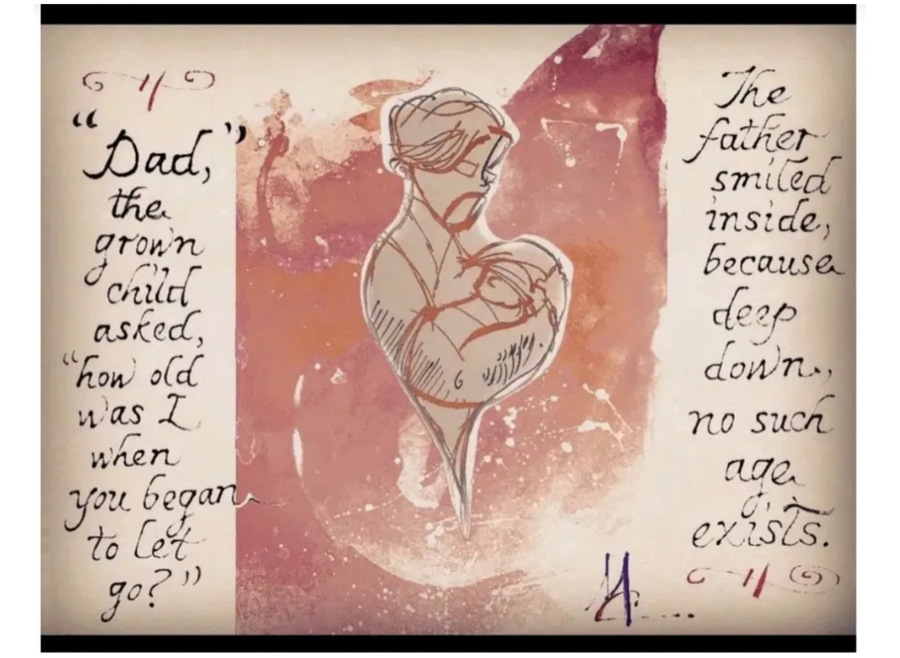 “Dad,”
the
grown
child
asked,
“how old
was I
when
you began
to let
go?”
The
father
smiled
inside,
because
deep
down,
no such
age
exists.